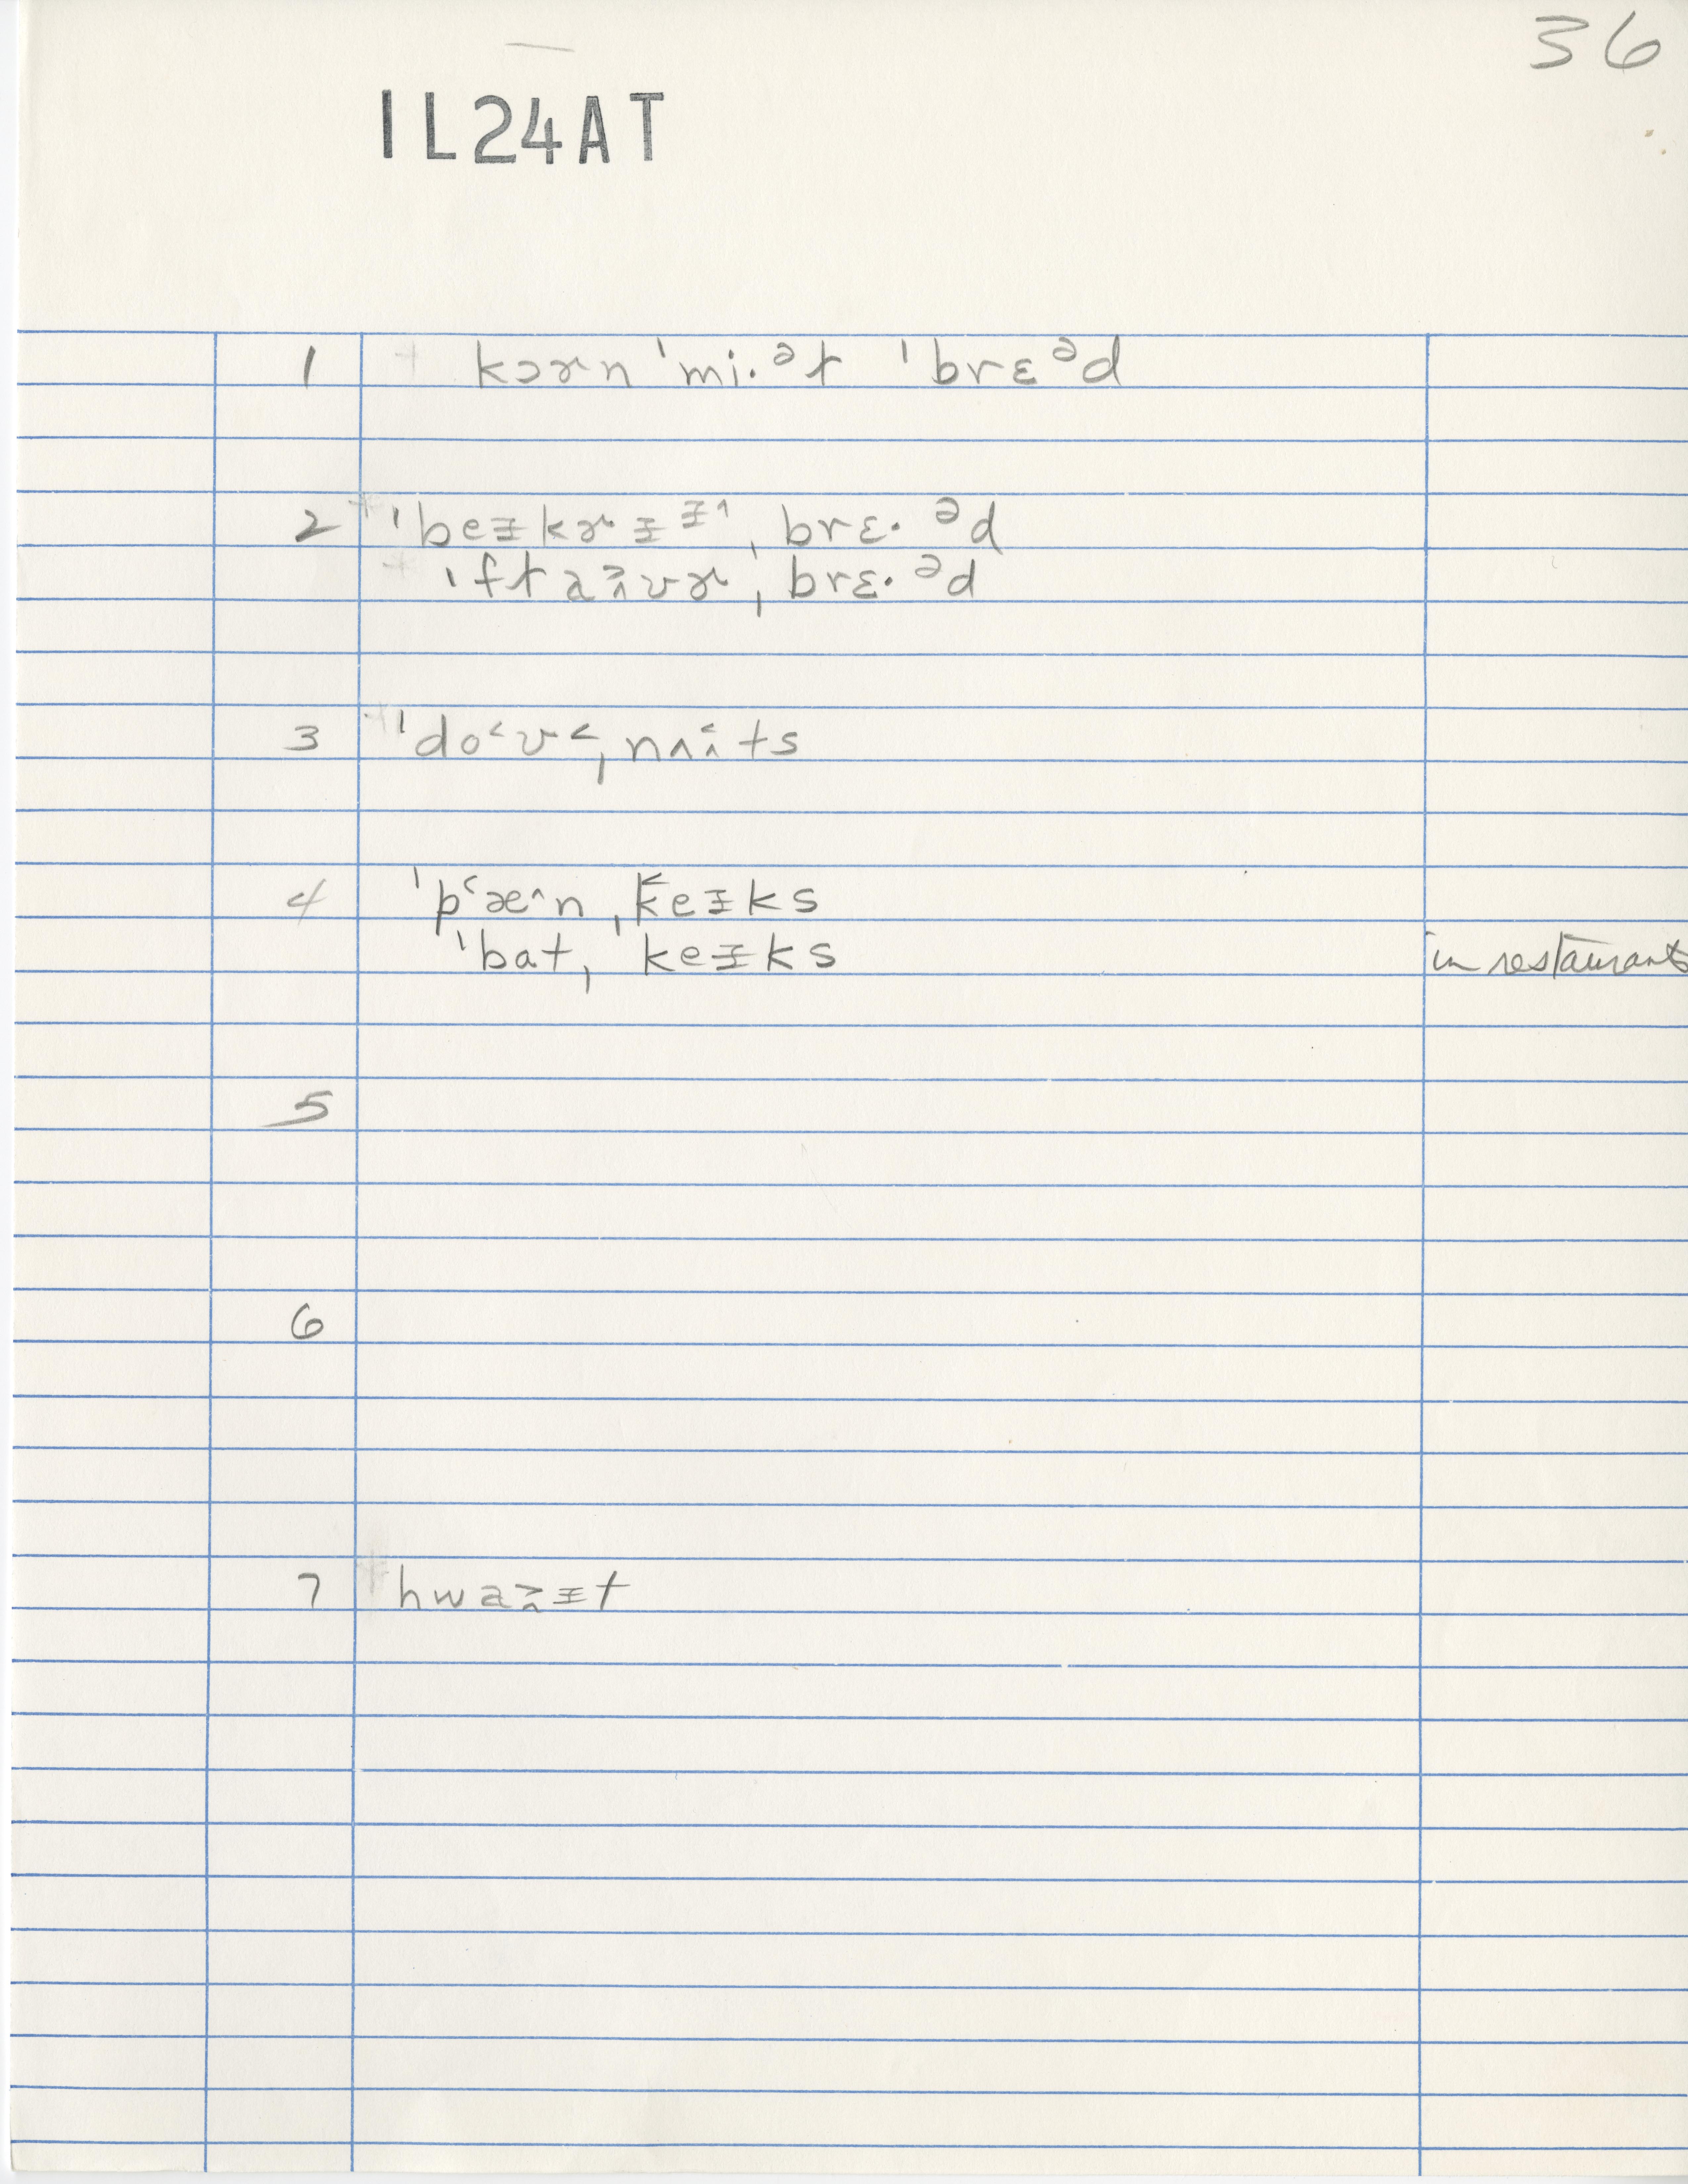 36
IL24AT
1 + kɔɚn ˈmi·ᵊɫ ˈbrɛᵊd
2 + ˈbeɪ̵kɚɪ̵ɪ̵^ ˌbrɛ·ᵊd
+ ˈfɫaʌ̬vɚ ˌbrɛ·ᵊd
3 + ˈdo˂ʊ˂ ˌnʌʌ̂ts
4 ˈp˂æ^n ˌk˂eɪ̵ks
ˈbatˌ keɪ̵ks in restaurants
5
6
7 + hwaɪ̵t